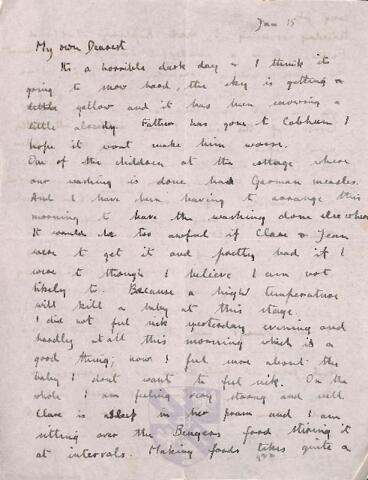 Jan 15
My own Dearest
Its a horrible dark day & I think its
going to snow hard, the sky is getting a
little yellow and it has been snowing a
little already. Father has gone to Cobham I
hope it wont make him worse.
One of the children at the cottage where
our washing is done had German measles.
And I have been having to arrange this
morning to have the washing done elsewhere
It would be too awful if Clare & Jean
were to get it and pretty bad if I
were to though I believe I am not
likely to. Because a high temperature
will kill a baby at this stage.
I did not feel sick yesterday evening and
hardly at all this morning which is a
good thing; now I feel more about the
baby I dont want to feel sick. On the
whole I am feeling very strong and well
Clare is asleep in her pram and I am
sitting over the Bengers food stiring it
at intervals. Making foods takes quite a